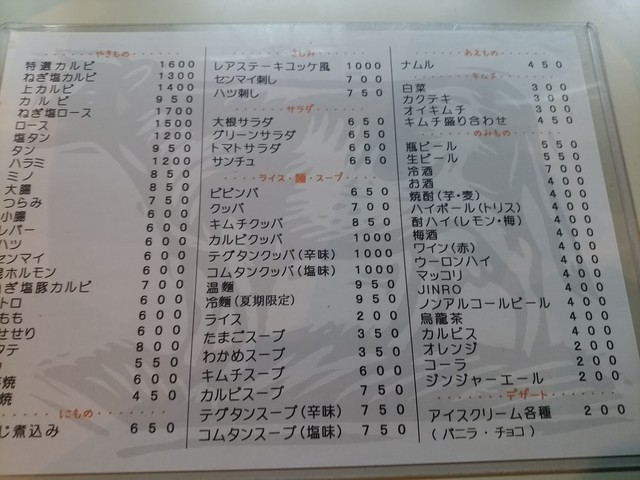 やきもの
特選カルビ 1600
ねぎ塩カルビ 1300
上カルビ 1400
カルビ 950
ねぎ塩ロース 1700
ロース 1500
塩タン 1200
タン 950
ハラミ 1200
ミノ 850
大腸 850
つらみ 750
小腸 600
レバー 600
ハツ 600
センマイ 600
ホルモン 600
ぎ塩豚カルビ 700
トロ 600
もも 600
せせり 600
タテ 800
550
焼 600
焼 450
にもの
じ煮込み 650
さしみ
レアステーキユッケ風 1000
センマイ刺し 700
ハツ刺し 750
サラダ
大根サラダ 650
グリーンサラダ 650
トマトサラダ 600
サンチュ 650
ライス・麺・スープ
ビビンバ 650
クッパ 700
キムチクッパ 850
カルビクッパ 1000
テグタンクッパ(辛味) 1000
コムタンクッパ(塩味) 1000
温麺 950
冷麺(夏期限定) 950
ライス 200
たまごスープ 350
わかめスープ 350
キムチスープ 600
カルビスープ 750
テグタンスープ(辛味) 750
コムタンスープ(塩味) 750
あえもの
ナムル 450
キムチ
白菜 300
カクテキ 300
オイキムチ 300
キムチ盛り合わせ 450
のみもの
瓶ビール 550
生ビール 550
冷酒 700
お酒 400
焼酎(芋・麦) 400
ハイボール(トリス) 400
酎ハイ(レモン・梅) 400
梅酒 400
ワイン(赤) 400
ウーロンハイ 400
マッコリ 400
JINRO 400
ノンアルコールビール 400
烏龍茶 200
カルピス 200
オレンジ 200
コーラ 200
ジンジャーエール 200
デザート
アイスクリーム各種 200
(バニラ・チョコ)